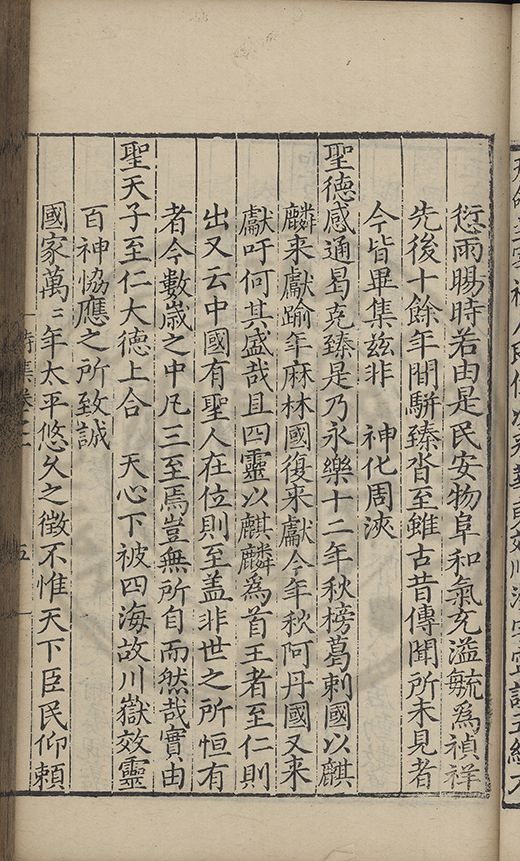 愆雨暘時若由是民安物阜和氣充溢毓為禎祥
先後十餘年間駢臻沓至雖古昔傳聞所未見者
今皆畢集兹非　神化周浹
聖德感通曷克臻是乃永樂十二年秋榜葛剌國以麒
麟来獻踰年麻林國復来獻今年秋阿丹國又来
獻吁何其盛哉且四靈以麒麟為首王者至仁則
出又云中國有聖人在位則至盖非世之所恒有
者今數歲之中凡三至焉豈無所自而然哉實由
聖天子至仁大德上合　天心下被四海故川嶽效靈
百神恊應之所致誠
國家萬〻年太平悠久之徵不惟天下臣民仰賴
五